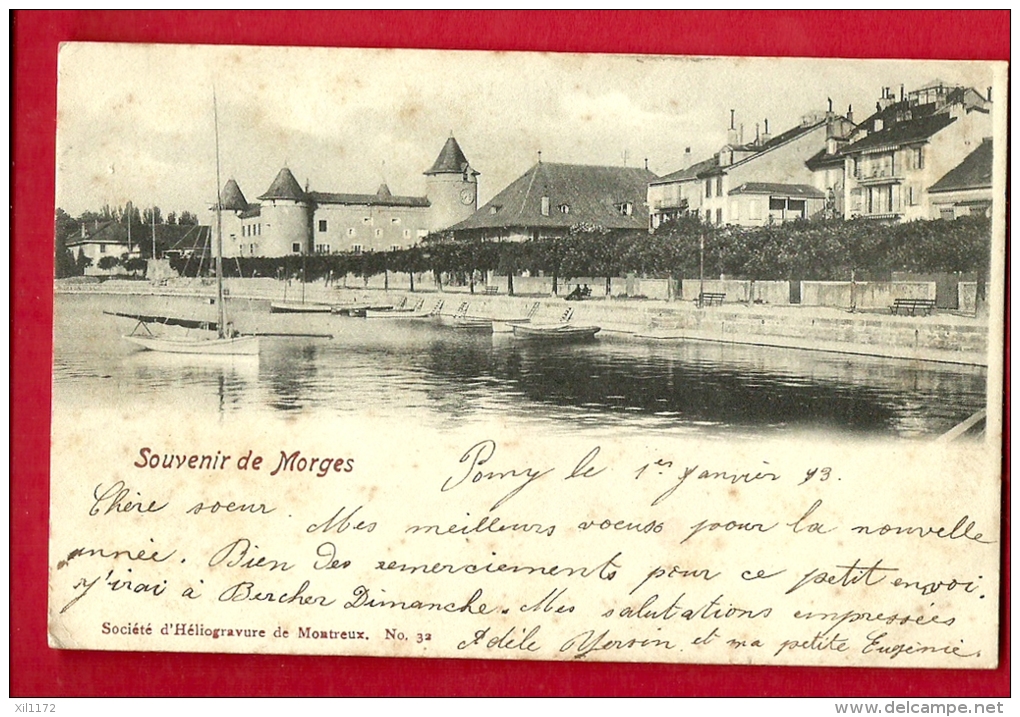 Souvenir de Morges
Pomy le 1er Janvier 03.
Chère soeur. Mes meilleurs voeux pour la nouvelle
année. Bien des remerciements pour ce petit envoi.
J'irai à Bercher Dimanche. Mes salutations empressées
Société d'Héliogravure de Montreux. No. 32
Adèle Yersin et ma petite Eugénie.
xil1172
www.delcampe.net